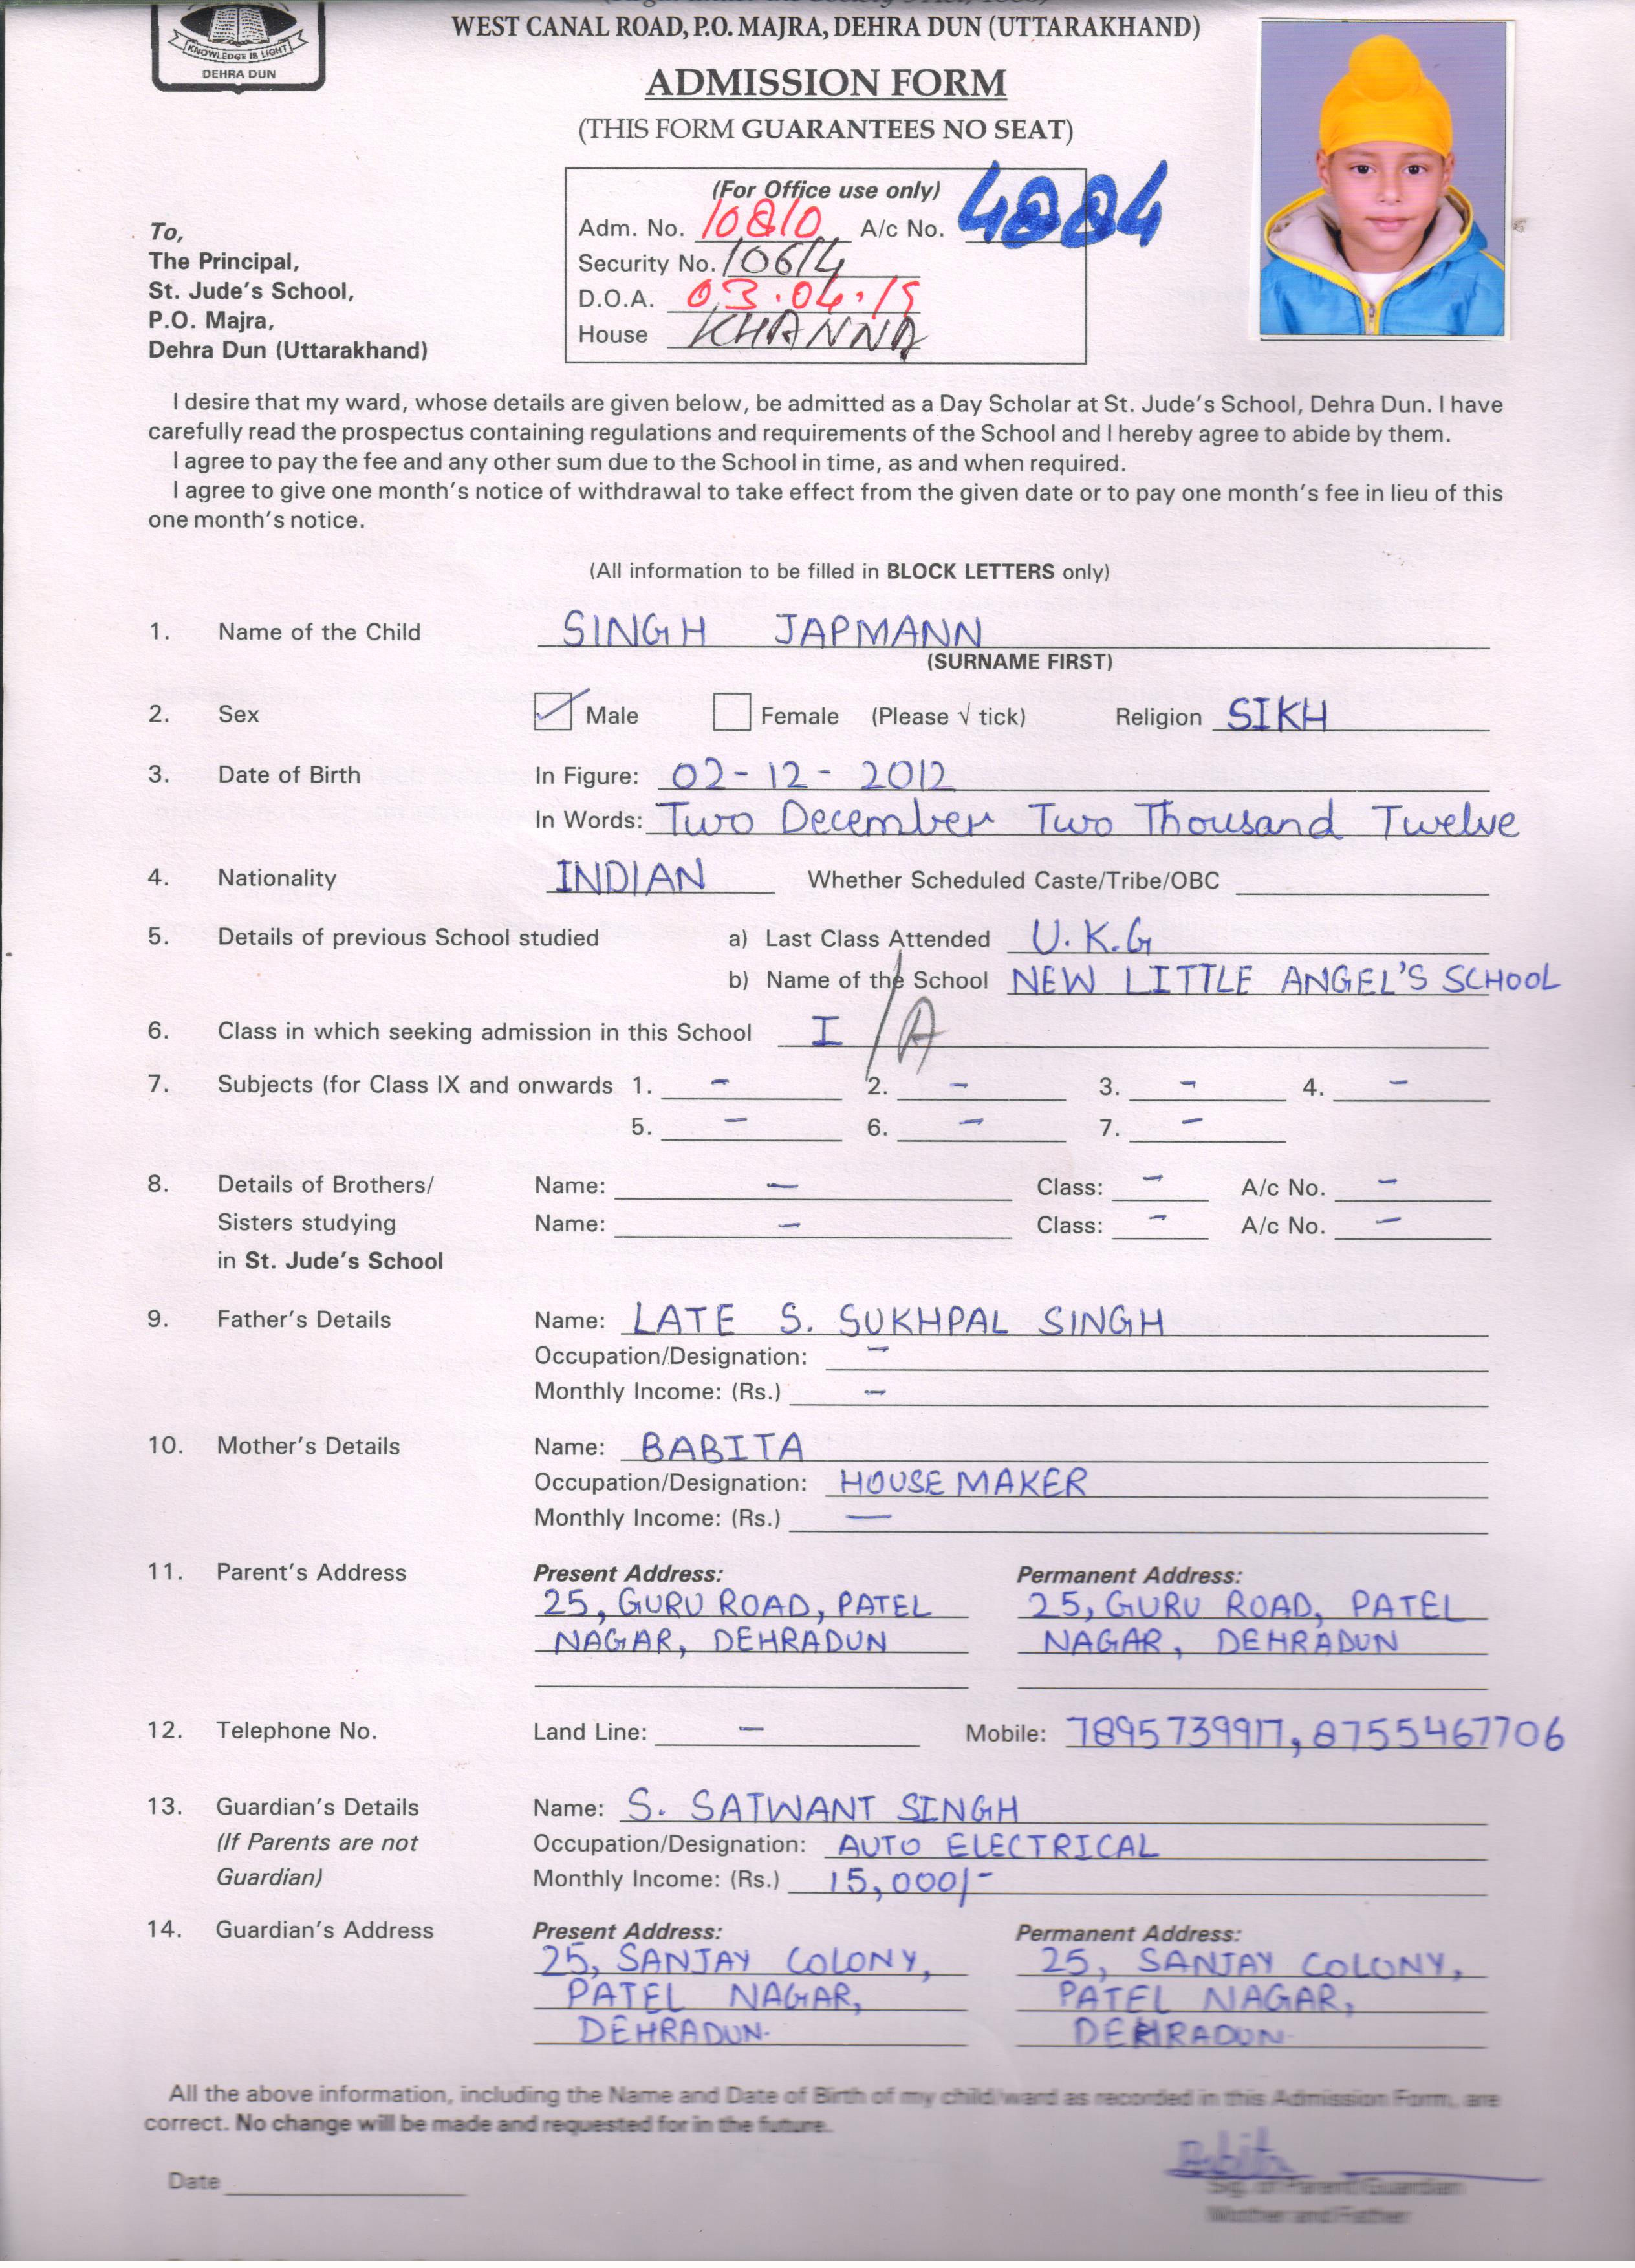 KNOWLEDGE IS LIGHT
DEHRA DUN
WEST CANAL ROAD, P.O. MAJRA, DEHRA DUN (UTTARAKHAND)
ADMISSION FORM
(THIS FORM GUARANTEES NO SEAT)
(For Office use only)
Adm. No. 10810 A/c No. 4884
Security No. 10614
D.O.A. 03.04.19
House KHANNA
To,
The Principal,
St. Jude's School,
P.O. Majra,
Dehra Dun (Uttarakhand)
I desire that my ward, whose details are given below, be admitted as a Day Scholar at St. Jude's School, Dehra Dun. I have
carefully read the prospectus containing regulations and requirements of the School and I hereby agree to abide by them.
I agree to pay the fee and any other sum due to the School in time, as and when required.
I agree to give one month's notice of withdrawal to take effect from the given date or to pay one month's fee in lieu of this
one month's notice.
(All information to be filled in BLOCK LETTERS only)
1. Name of the Child SINGH JAPMANN
(SURNAME FIRST)
2. Sex Male Female (Please √ tick) Religion SIKH
3. Date of Birth In Figure: 02-12-2012
In Words: Two December Two Thousand Twelve
4. Nationality INDIAN Whether Scheduled Caste/Tribe/OBC
5. Details of previous School studied a) Last Class Attended U.K.G
b) Name of the School NEW LITTLE ANGEL'S SCHOOL
6. Class in which seeking admission in this School I /A
7. Subjects (for Class IX and onwards 1. - 2. - 3. - 4. -
5. - 6. - 7. -
8. Details of Brothers/ Name: - Class: - A/c No. -
Sisters studying Name: - Class: - A/c No. -
in St. Jude's School
9. Father's Details Name: LATE S. SUKHPAL SINGH
Occupation/Designation: -
Monthly Income: (Rs.) -
10. Mother's Details Name: BABITA
Occupation/Designation: HOUSE MAKER
Monthly Income: (Rs.) -
11. Parent's Address Present Address: Permanent Address:
25, GURU ROAD, PATEL 25, GURU ROAD, PATEL
NAGAR, DEHRADUN NAGAR, DEHRADUN
12. Telephone No. Land Line: - Mobile: 7895739917, 8755467706
13. Guardian's Details Name: S. SATWANT SINGH
(If Parents are not Occupation/Designation: AUTO ELECTRICAL
Guardian) Monthly Income: (Rs.) 15,000/-
14. Guardian's Address Present Address: Permanent Address:
25, SANJAY COLONY, 25, SANJAY COLONY,
PATEL NAGAR, PATEL NAGAR,
DEHRADUN. DEHRADUN.
All the above information, including the Name and Date of Birth of my child/ward as recorded in this Admission Form, are
correct. No change will be made and requested for in the future.
Date
Sig. of Parent/Guardian
Mother and Father